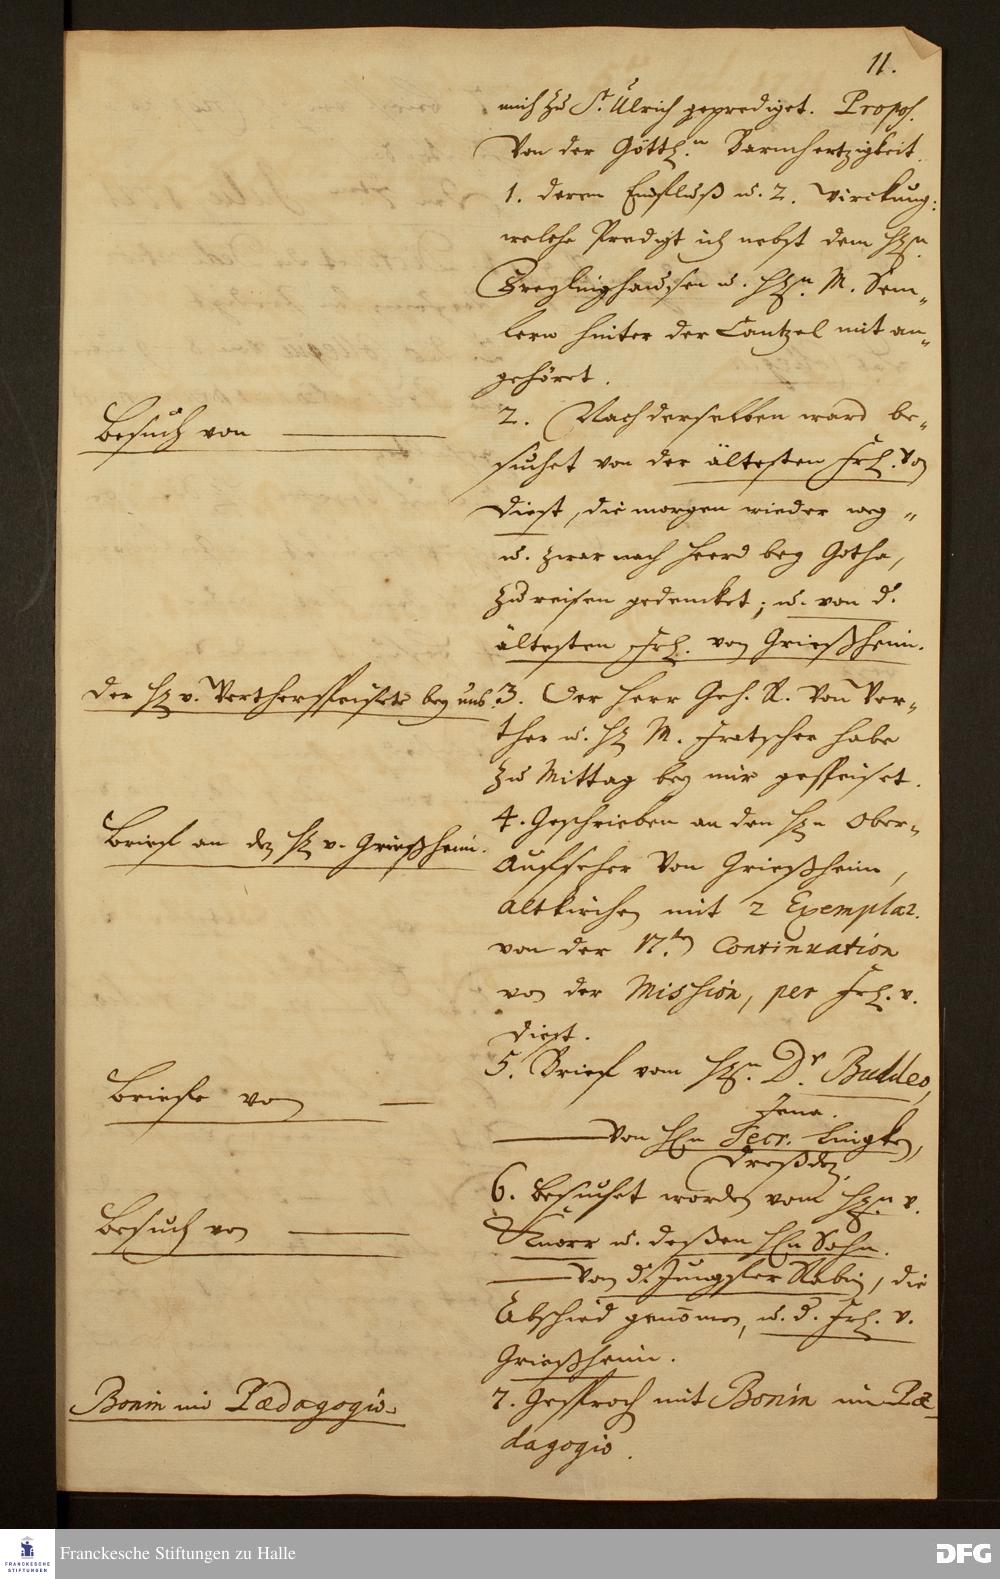 11.
mich zu St. Ulrich geprediget. Propos.
Von der Göttl.n Barmhertzigkeit
1. deren Einfluß u. 2. Wirckung:
welche Predigt ich nebst dem HEn
u. HEn. M. Sem„
lern hinter der Cantzel mit an„
gehöret.
Besuch von
2. Nach derselben ward be„
suchet von der ältesten Frl. von
Diest, die morgen wieder weg„
u. zwar nach Heerd bey Gotha,
zu reisen gedencket; u. von d.
ältesten Frl. von Grießheim.
Der H v. Werther speisete bey uns
3. Der Herr Geh. R. Von Wer„
ther u. H M. Fratscher habe
zu Mittag bey mir gespeiset.
Brief an den H v. Grießheim.
4. Geschrieben an den HEn Ober„
Auffseher Von Grießheim,
Altkirchen mit 2 Exemplar.
von der 17.ten Continuation
von der Mission, per Frl. v.
Diest.
Briefe von
5. Brief vom HEn. Dr Buddeo,
Jena.
von HEn Secr. Lingken,
Dreßden
Besuch von
6. Besuchet worden vom HEn v.
Knorr u. deßen HEn Sohn.
Von d. Jungfer Rabin, die
Abschied genommen, u. d. Frl. v.
Grießheim.
Bonin im Pædagogio.
7. Gesproch mit Bonin im Pæ
dagogio.
FRANCKESCHE
STIFTUNGEN
Franckesche Stiftungen zu Halle
DFG